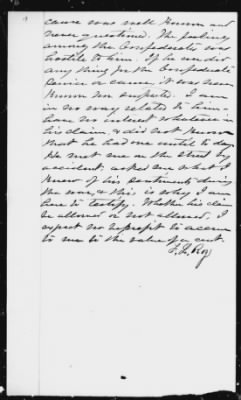 cause was well known and
never questioned. The feeling
among the Confederates was
hostile to him. If he ever did
any thing for the Confederate
service or cause it was never
known nor suspected. I am
in no way related to him -
have no interest whatever in
his claim, & did not know
that he had one until to day.
He met me on the street by
accident, asked me what I
knew of his sentiments during
the war, & this is why I am
here to testify. Whether his claim
be allowed or not allowed, I
expect no reprofit to accrue
to me to the value of a cent.